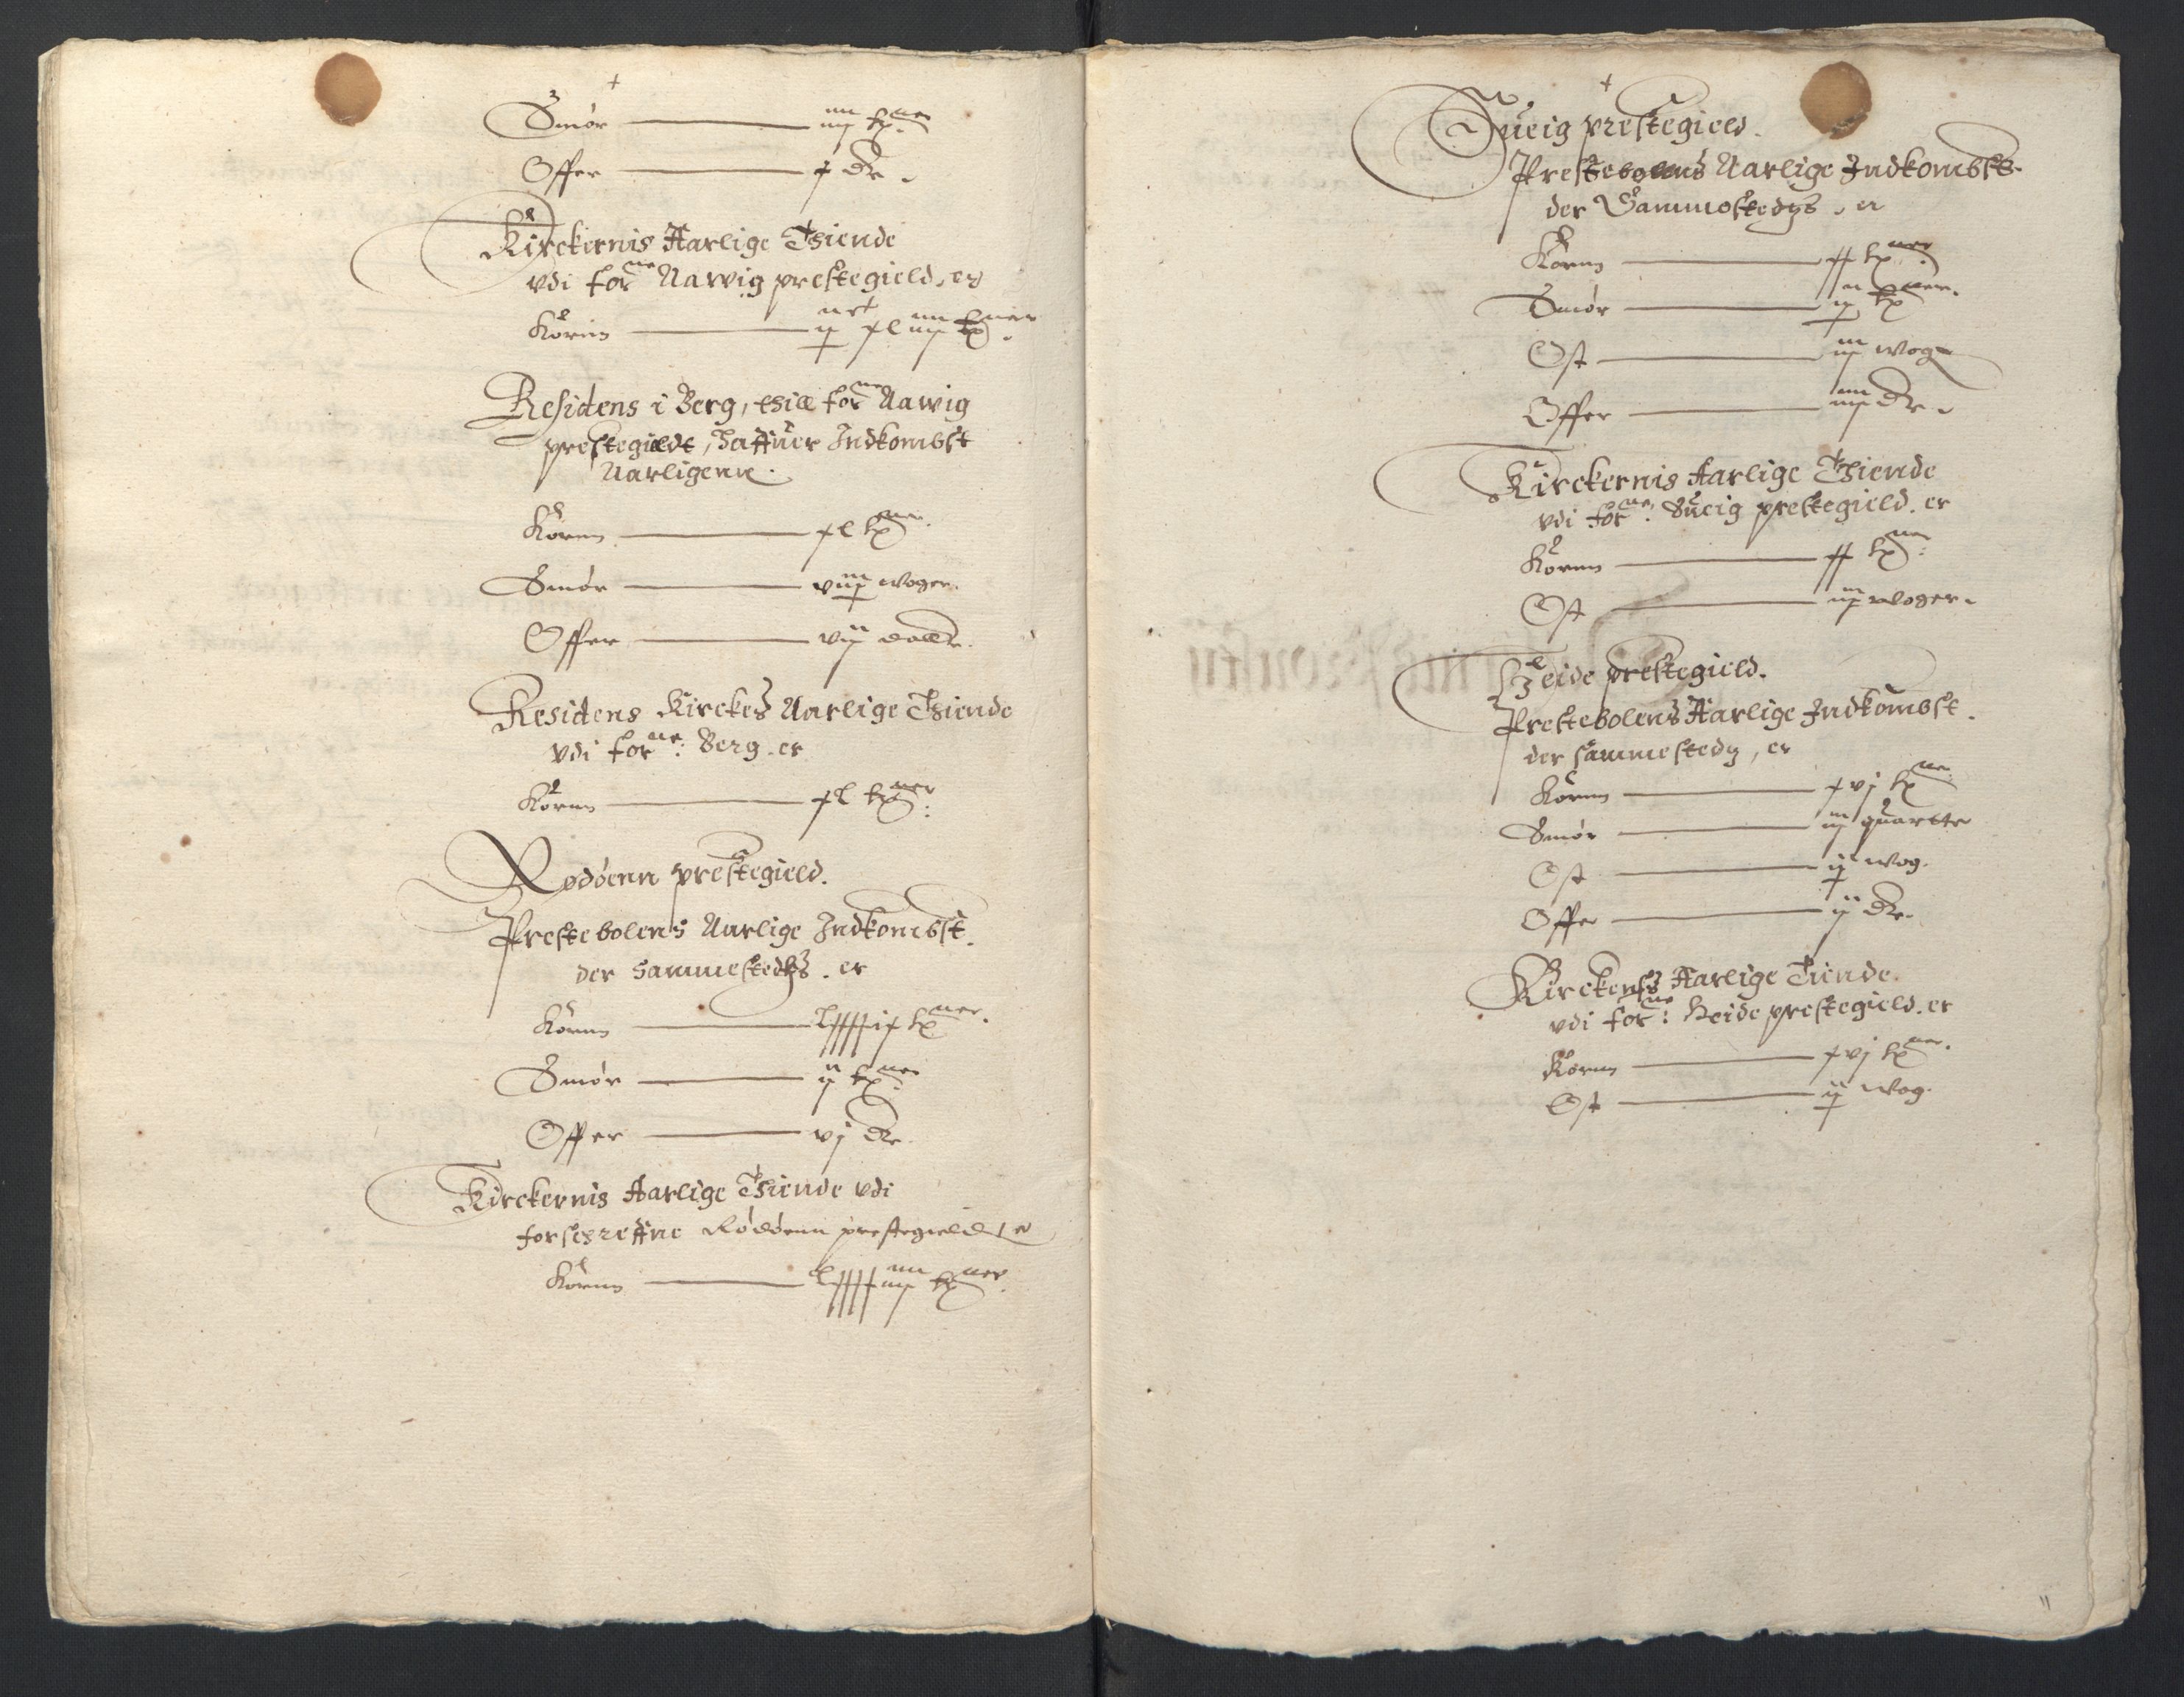 Smør — iiij tꝫner
Offer — x dlr.
Kirckernis Aarlige Thiende
vdi forne Narvig prestegield, er
Kornn — xl iiij tꝫner.
Residens i Berg, thill forne Narvig
prestegieldt, haffuer Indkombst
Aarligenn.
Kornn — xl tꝫner.
Smør — viij woger.
Offer — vij daller.
Residens Kirckes Aarlige Thiende
vdi forne: Berg. er
Kornn — xl tꝫner:
Rødøenn prestegield.
Prestebolens Aarlige Indkombst.
der Sammestedtz. er
Kornn — tꝫner.
Smør — ij tꝫner
Offer — vj dlr.
Kirckernis Aarlige Thiende vdi
forschreffne Rødøenn prestegield, er
Kornn — tꝫner.
Sueig prestegield.
Prestebolens Aarlige Indkombst.
der Sammestedtz, er
Kornn — xx tꝫner
Smør — tꝫner.
Ost — iij wog
Offer — iiij dlr.
Kirckernis Aarlige Thiende
vdi forne: Sueig prestegield. er
Kornn — xx tꝫner:
Ost — woger.
Heide prestegield.
Prestebolens Aarlige Indkombst.
der sammestedtz, er
Kornn — xvj tꝫner
Smør — iij quarter
Ost — wog.
Offer — ij dlr.
Kirckens Aarlige Tiende.
vdi forne: Heide prestegield. er
Kornn — xvj tꝫner.
Ost — wog.
11